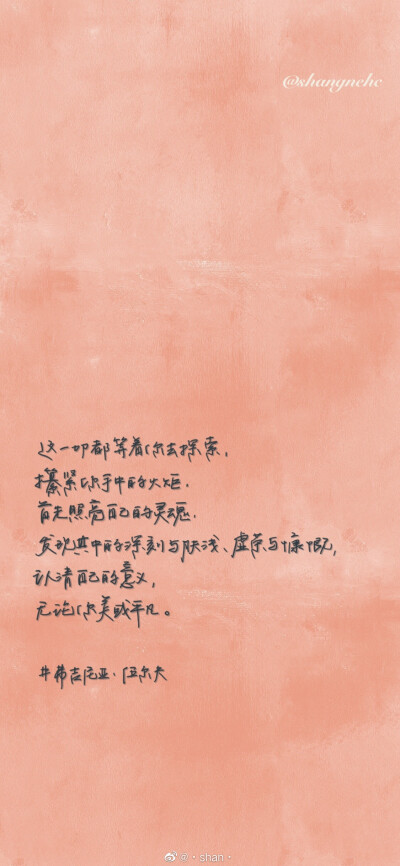 @shangnehc
这一切都等着你去探索,
攥紧你手中的火炬.
首先照亮自己的灵魂.
发现其中的深刻与肤浅、虚荣与慷慨,
认清自己的意义,
无论你美或平凡。
# 弗吉尼亚·伍尔夫
@·shan·